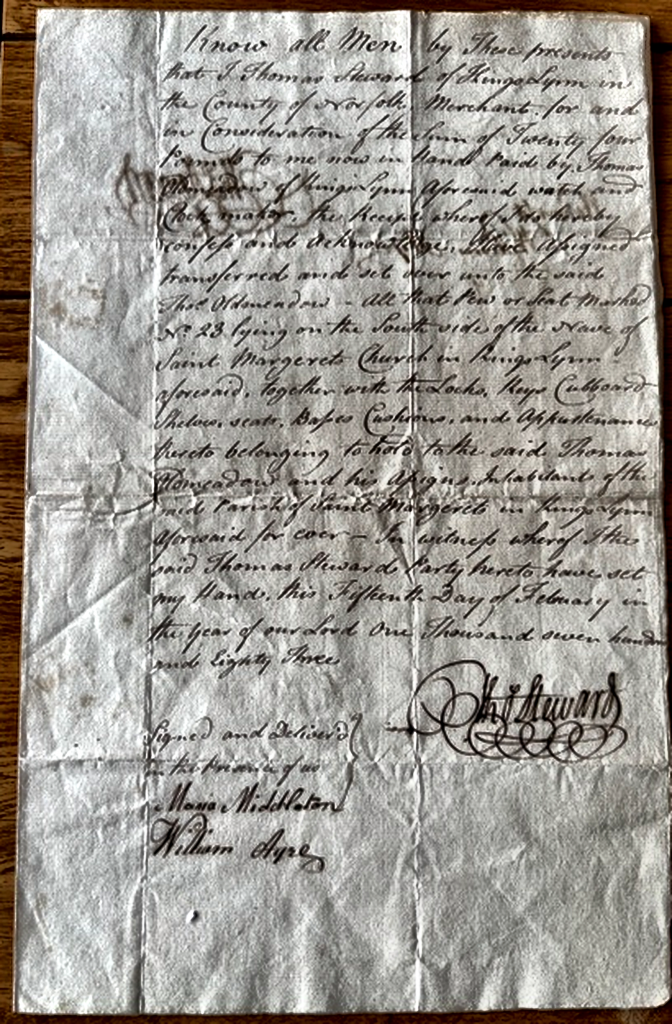 Know all Men by These presents
that I Thomas Steward of Kings Lynn in
the County of Norfolk, Merchant for and
in Consideration of the Sum of Twenty four
Pounds to me now in Hand Paid by Thomas
Oldmeadow of Kings Lynn Aforesaid watch and
Clock maker, the Receipt wherof I do hereby
confess and Acknowledge, Have Assigned
transferred and set over unto the said
Thos. Oldmeadow - All that Pew or Seat Marked
No. 23 lying on the South side of the Nave of
Saint Margerets Church in Kings Lynn
aforesaid, together with the Locks, Keys Cubboard
Shelves, seats, Basses Cushions, and Appurtenances
thereto belonging to hold to the said Thomas
Oldmeadow and his Assigns, Inhabitants of the
said Parish of Saint Margerets in Kings Lynn
aforesaid for ever - In witness wherof I the
said Thomas Steward Party hereto have set
my Hand, this Fifteenth Day of February in
the year of our Lord One Thousand seven hundred
and Eighty Three
Thos Steward
Signed and Deliver'd
in the Presence of us
Maria Middleton
William Ayre